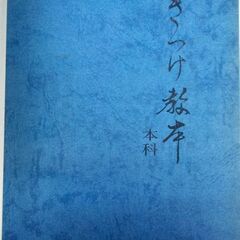 きつけ教本
本科